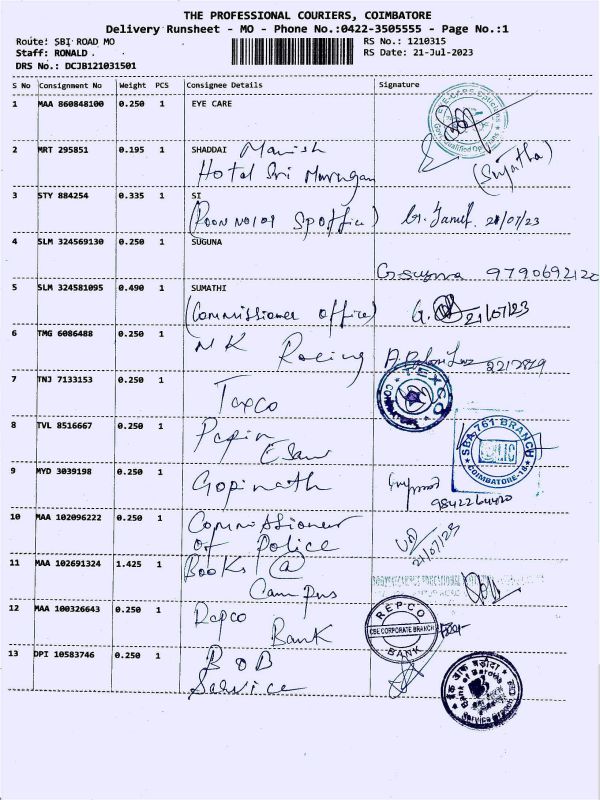 THE PROFESSIONAL COURIERS, COIMBATORE
Delivery Runsheet - MO - Phone No.:0422-3505555 - Page No.:1
Route: SBI ROAD MO RS No.: 1210315
Staff: RONALD . RS Date: 21-Jul-2023
DRS No.: DCJB121031501
S No Consignment No Weight PCS Consignee Details Signature
1 MAA 860848100 0.250 1 EYE CARE
EYE-CARE Opticians
2 MRT 295851 0.195 1 SHADDAI Manish
Hotal Sri Murugan (Sujatha)
3 STY 884254 0.335 1 SI
(Room No 109 SP office) 21/07/23
4 SLM 324569130 0.250 1 SUGUNA
G. Suguna 9790692120
5 SLM 324581095 0.490 1 SUMATHI
(Commissioner office) G. 21/07/23
6 TMG 6086488 0.250 1 M K Racing
7 TNJ 7133153 0.250 1 Texco
TEXCO
8 TVL 8516667 0.250 1
SBA-761 BRANCH
LIC
COIMBATORE-18
9 MYD 3039198 0.250 1 Gopinath
9842264420
10 MAA 102096222 0.250 1 Commissioner
of Police 21/07/23
11 MAA 102691324 1.425 1 Books @
Campus
12 MAA 100326643 0.250 1 Repco
Bank
REPCO
CBE CORPORATE BRANCH
BANK
13 DPI 10583746 0.250 1 BOB
Service
बैंक ऑफ़ बड़ौदा
Bank of Baroda
Service Branch